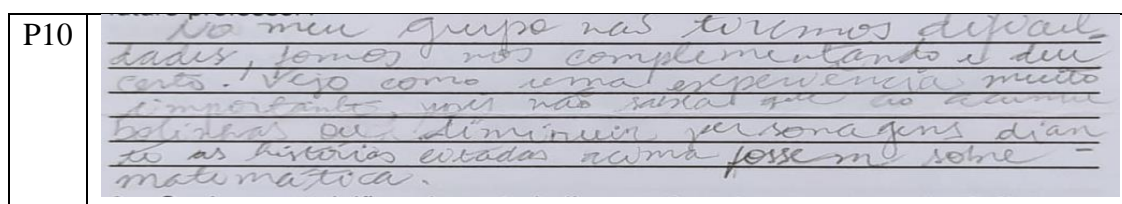 P10
No meu grupo nas tivemos dificul-
dades, fomos nos complementando e deu
certo. Vejo como uma experiência muito
importante, pois não sabia que ao
bolinhas ou diminuir personagens dian
te as histórias citadas acima fossem sobre -
matemática.